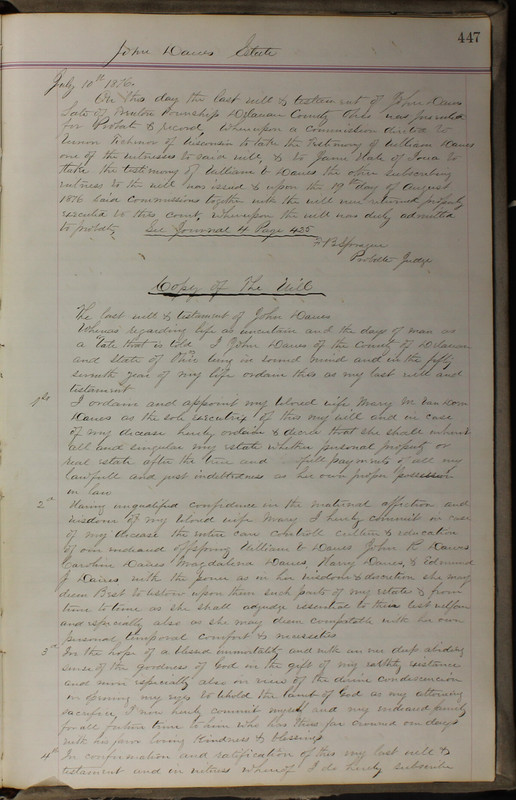 447
John Daves Estate
July 10th 1876.
On this day the last will & testament of John Daves
Late of Trenton Township Delaware County Ohio was presented
for Probate & record, Whereupon a Commission directed to
Vernon Tichenor of Wisconsin to take the Testimony of William Daves
one of the witnesses to said will, & to James Hale of Iowa to
take the testimony of William G Daves the other subscribing
witness to the will was issued & upon the 19th day of August
1876 Said Commissions together with the will were returned properly
executed to this court, whereupon the will was duly admitted
to probate. See Journal 4 Page 425
F B Sprague
Probate Judge
Copy of The Will
The last will & testament of John Daves
Whereas regarding life as uncertain and the days of man as
a tale that is told I John Daves of the County of Delaware
and State of Ohio being in sound mind and in the fifty
seventh year of my life ordain this as my last will and
testament
1st I ordain and appoint my beloved wife Mary M. Van Dorn
Daves as the sole executrix of this my will and in case
of my decease hereby ordain & decree that she shall inherit
all and singular my estate whether personal property or
real estate after the true and full payments of all my
lawfull and just indebtedness as her own proper possession
in law
2nd Having unqualified confidence in the maternal affection and
wisdom of my beloved wife Mary I hereby commit in case
of my decease the entire care controll culture & education
of our endeared offspring William G Daves John R. Daves
Caroline Daves Magdalena Daves, Harry Daves, & Edmund
J. Daves with the power as in her wisdom & discretion she may
deem Best to bestow upon them such parts of my estate & from
time to time as she shall adjudge essential to their best welfare
and especially also as she may deem compatable with her own
personal, temporal comfort & necessities
3rd In the hope of a blessed immortality and with an ever deep abiding
sense of the goodness of God in the gift of my earthly existence
and more especially also in view of the divine condescension
in opening my eyes to behold the Lamb of God as my attoning
sacrifice, I now hereby commit myself and my endeared family
for all future time to him who has thus far crowned our days
with his favor loving kindness & blessings
4th In confirmation and ratification of this my last will &
testament and in witness whereof I do hereby subscribe